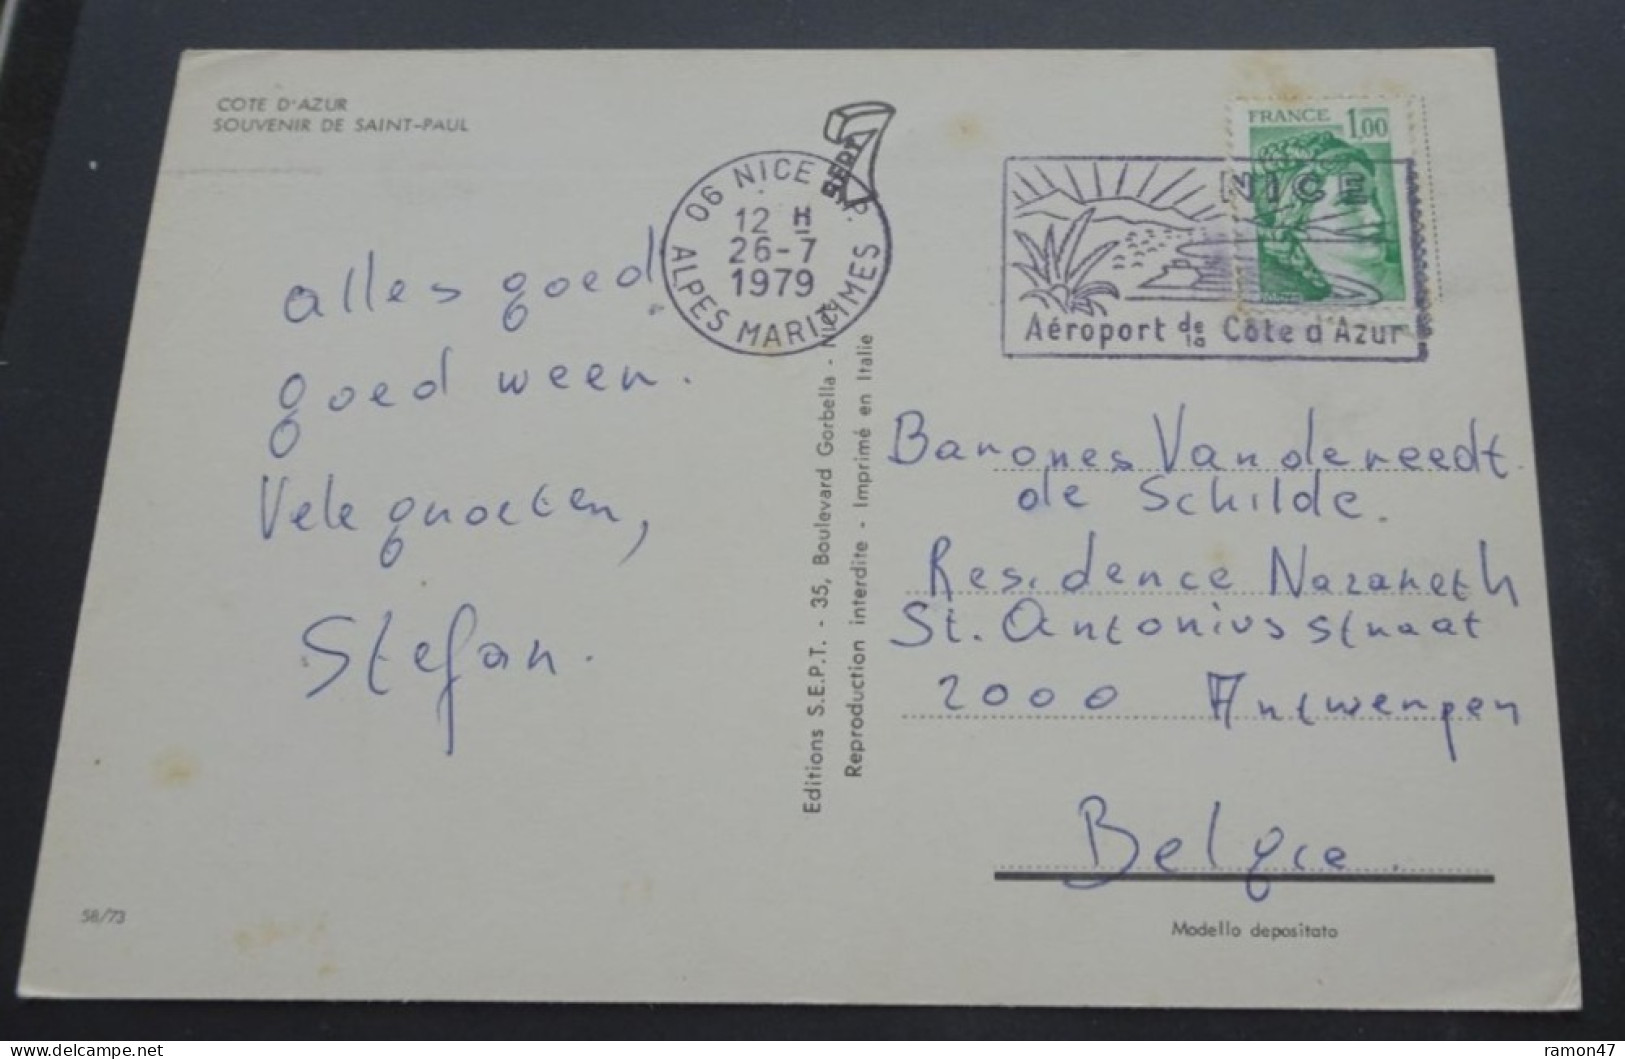 COTE D'AZUR
SOUVENIR DE SAINT-PAUL
alles goed
goed weer.
Vele groeten,
Stefan.
58/73
Editions S.E.P.T. - 35, Boulevard Gorbella -
Reproduction interdite - Imprimé en Italie
SEPT
06 NICE R.P.
12 H
26-7
1979
ALPES MARITIMES
NICE
Aéroport de la Côte d'Azur
FRANCE 1,00
Barones Vandereedt
de Schilde.
Residence Nazareth
St. Antonius straat
2000 Antwerpen
Belgie.
Modello depositato
ramon47